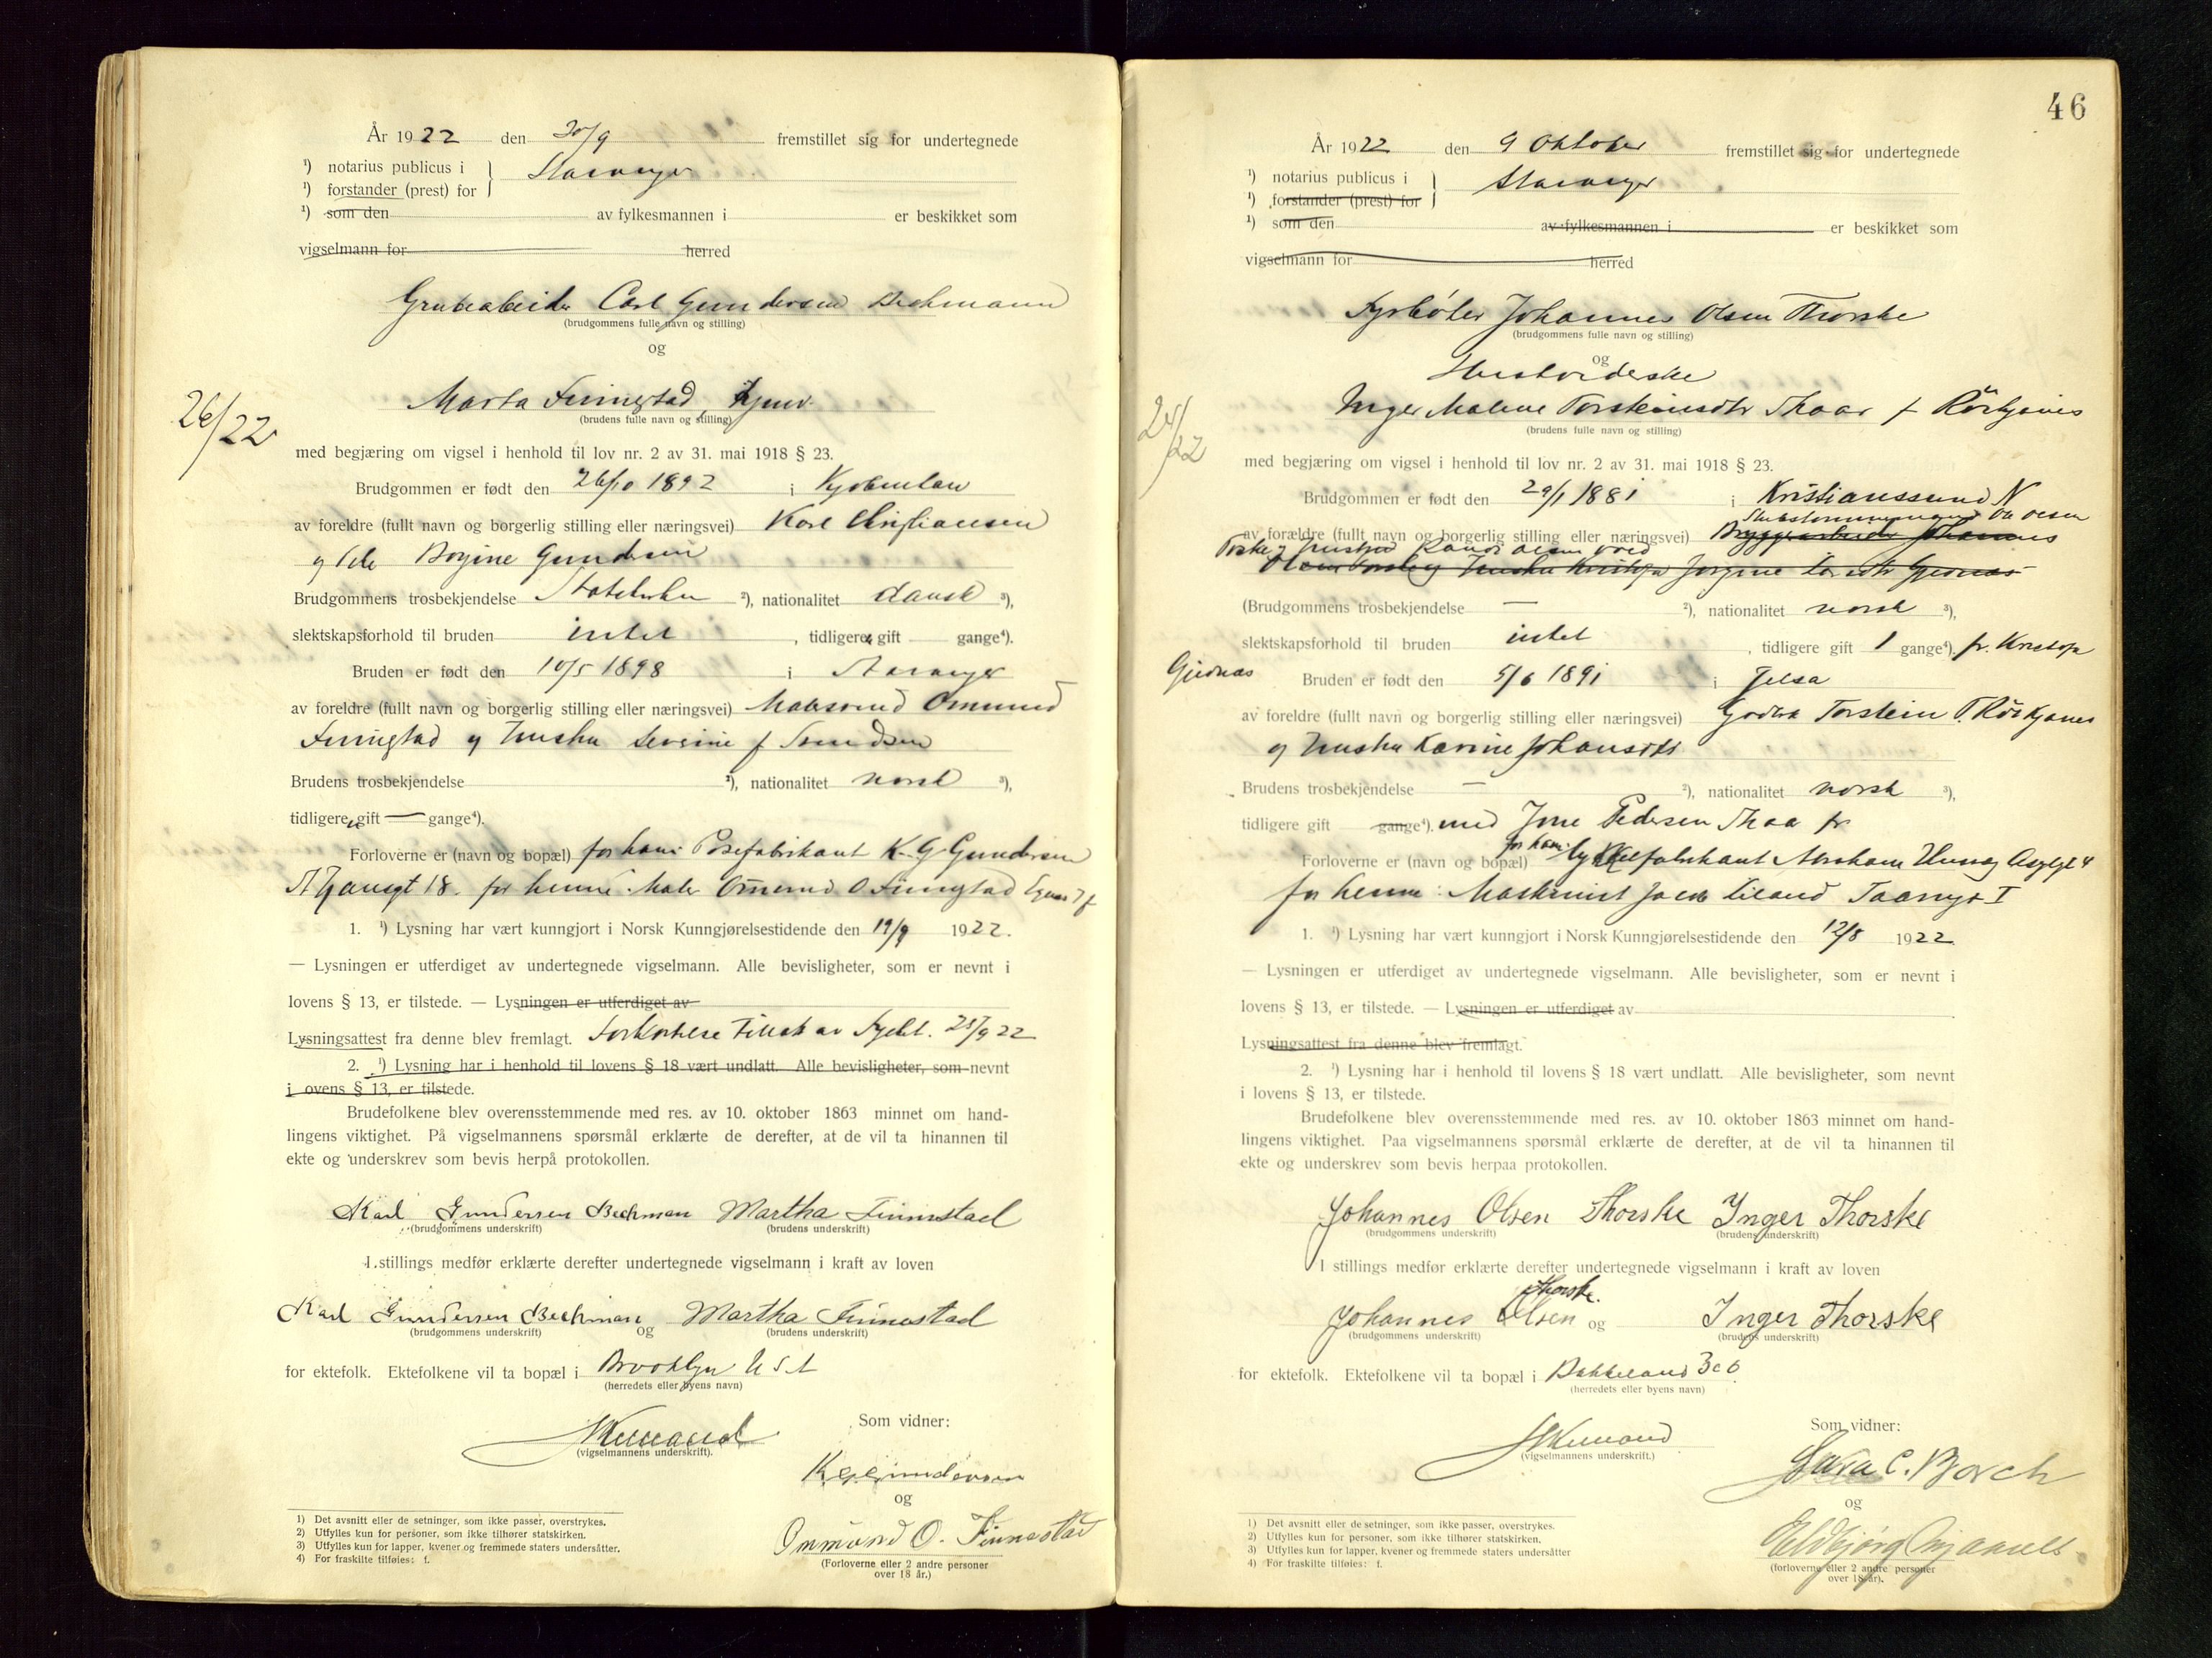 År 1922 den 30/9 fremstillet sig for undertegnede
¹) notarius publicus i
¹) forstander (prest) for
Stavanger
¹) som den av fylkesmannen i er beskikket som
vigselmann for herred
Grubearbeider Carl Gundersen Bechmann
(brudgommens fulle navn og stilling)
og
Marta Finnestad, hjemv.
(brudens fulle navn og stilling)
26/22
med begjæring om vigsel i henhold til lov nr. 2 av 31. mai 1918 § 23.
Brudgommen er født den 26/10 1892 i Kjøbenhavn
av foreldre (fullt navn og borgerlig stilling eller næringsvei) Karl Christiansen
og Borgine Gundersen
Brudgommens trosbekjendelse Statskirken ²), nationalitet dansk ³),
slektskapsforhold til bruden intet , tidligere gift gange⁴).
Bruden er født den 10/5 1898 i Stavanger
av foreldre (fullt navn og borgerlig stilling eller næringsvei) Ommund
Finnestad og hustru Severine f
Brudens trosbekjendelse ²), nationalitet norsk ³),
tidligere gift — gange⁴).
Forloverne er (navn og bopæl) for ham: Posefabrikant K. G. Gundersen
18. for henne: Maler Ommund O Finnestad
1. ¹) Lysning har vært kunngjort i Norsk Kunngjørelsestidende den 19/9 1922.
— Lysningen er utferdiget av undertegnede vigselmann. Alle bevisligheter, som er nevnt i
lovens § 13, er tilstede. — Lysningen er utferdiget av
Lysningsattest fra denne blev fremlagt. Forkortelse tillatt av 25/9 22
2. ¹) Lysning har i henhold til lovens § 18 vært undlatt. Alle bevisligheter, som nevnt
i ovens § 13, er tilstede.
Brudefolkene blev overensstemmende med res. av 10. oktober 1863 minnet om hand-
lingens viktighet. På vigselmannens spørsmål erklærte de derefter, at de vil ta hinannen til
ekte og underskrev som bevis herpå protokollen.
Karl Gundersen Bechman Martha Finnestad
(brudgommens underskrift) (brudens underskrift)
I stillings medfør erklærte derefter undertegnede vigselmann i kraft av loven
Karl Gundersen Bechman og Martha Finnestad
(brudgommens underskrift) (brudens underskrift)
for ektefolk. Ektefolkene vil ta bopæl i Brooklyn U S A
(herredets eller byens navn)
(vigselmannens underskrift).
Som vidner:
K. G. Gundersen
og
Ommund O. Finnestad
(Forloverne eller 2 andre personer
over 18 år.)
1) Det avsnitt eller de setninger, som ikke passer, overstrykes.
2) Utfylles kun for personer, som ikke tilhører statskirken.
3) Utfylles kun for lapper, kvener og fremmede staters undersåtter.
4) For fraskilte tilføies: f.
46
År 1922 den 9 Oktober fremstillet sig for undertegnede
¹) notarius publicus i
¹) forstander (prest) for
Stavanger
¹) som den av fylkesmannen i er beskikket som
vigselmann for herred
Fyrbøter Johannes Olsen Thorske
(brudgommens fulle navn og stilling)
og
Husholderske
Inger Malene Torsteinsdtr Thaa f
(brudens fulle navn og stilling)
med begjæring om vigsel i henhold til lov nr. 2 av 31. mai 1918 § 23.
Brudgommen er født den 29/1 1881 i Kristianssund N
av foreldre (fullt navn og borgerlig stilling eller næringsvei) Bryggearbeider Johannes
Brudgommens trosbekjendelse — ²), nationalitet norsk ³),
slektskapsforhold til bruden intet , tidligere gift 1 gange⁴).
Bruden er født den 5/6 1891 i Jelsa
av foreldre (fullt navn og borgerlig stilling eller næringsvei) Gaardbr Torstein T.
og hustru Karine Johansdtr
Brudens trosbekjendelse — ²), nationalitet norsk ³),
tidligere gift gange⁴). med Pedersen Thaa
Forloverne er (navn og bopæl) for ham: Abraham
for henne: Maskinist Jacob
1. ¹) Lysning har vært kunngjort i Norsk Kunngjørelsestidende den 12/8 1922
— Lysningen er utferdiget av undertegnede vigselmann. Alle bevisligheter, som er nevnt i
lovens § 13, er tilstede. — Lysningen er utferdiget av
Lysningsattest fra denne blev fremlagt.
2. ¹) Lysning har i henhold til lovens § 18 vært undlatt. Alle bevisligheter, som nevnt
i lovens § 13, er tilstede.
Brudefolkene blev overensstemmende med res. av 10. oktober 1863 minnet om hand-
lingens viktighet. Paa vigselmannens spørsmål erklærte de derefter, at de vil ta hinannen til
ekte og underskrev som bevis herpaa protokollen.
Johannes Olsen Thorske Inger Thorske
(brudgommens underskrift) (brudens underskrift)
I stillings medfør erklærte derefter undertegnede vigselmann i kraft av loven
Thorske.
Johannes Olsen og Inger Thorske
(brudgommens underskrift) (brudens underskrift)
for ektefolk. Ektefolkene vil ta bopæl i
(herredets eller byens navn)
(vigselmannens underskrift.)
Som vidner:
C. Borch
og
(forloverne eller 2 andre personer
over 18 år).
1) Det avsnitt eller de setninger, som ikke passer, overstrykes.
2) Utfylles kun for personer, som ikke tilhører statskirken,
3) Utfylles kun for lapper, kvener og fremmede staters undersåtter
4) For fraskilte tilføies: f.